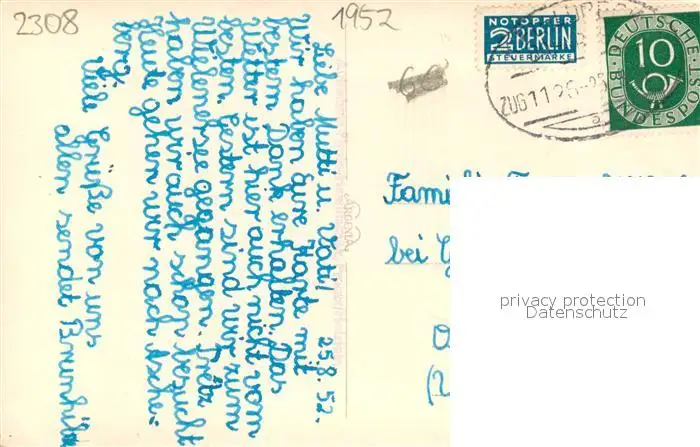 2308
1952
NOTOPFER
2 BERLIN
STEUERMARKE
DEUTSCHE
BUNDESPOST
10
ZUG 11
25.8.52.
Liebe Mutti u. Vati!
Wir haben Eure Karte mit
bestem Dank erhalten. Das
Wetter ist hier auch nicht vom
besten. Gestern sind wir zum
gegangen. Fritz
haben wir auch schon besucht
Heute gehen wir nach Esche=
berg.
Viele Grüße von uns
allen sendet Brunhild
Familie
bei
privacy protection
Datenschutz